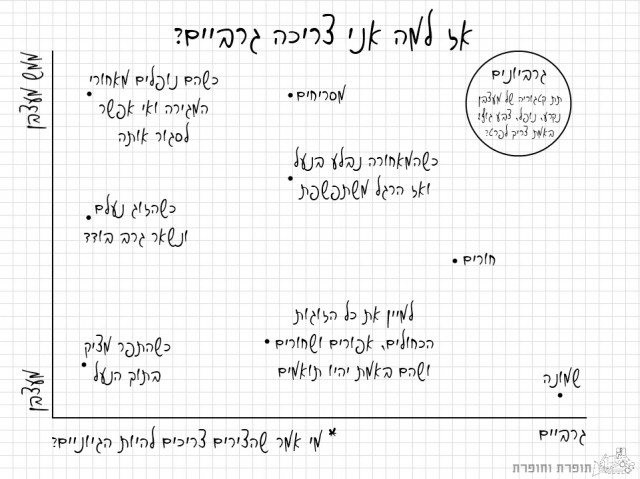 אז למה אני צריכה גרביים?
ממש מעצבן
כשהם נופלים מאחורי
המגירה ואי אפשר
לסגור אותה
מסריחים
גרביונים
תת קטגוריה של מעצבן
נקרע, נופל, צבע גועלי
באמת צריך לפרט?
כשהמאחורה נבלע בנעל
ואז הרגל משתפשפת
כשהזוג נעלם
ונשאר גרב בודד
חורים
למיין את כל הזוגות
הכחולים, אפורים ושחורים
ושהם באמת יהיו תואמים
כשהתפר מציק
בתוך הנעל
שמונה
מעצבן
גרביים
* מי אמר שהצירים צריכים להיות הגיוניים?
תופרת וחופרת